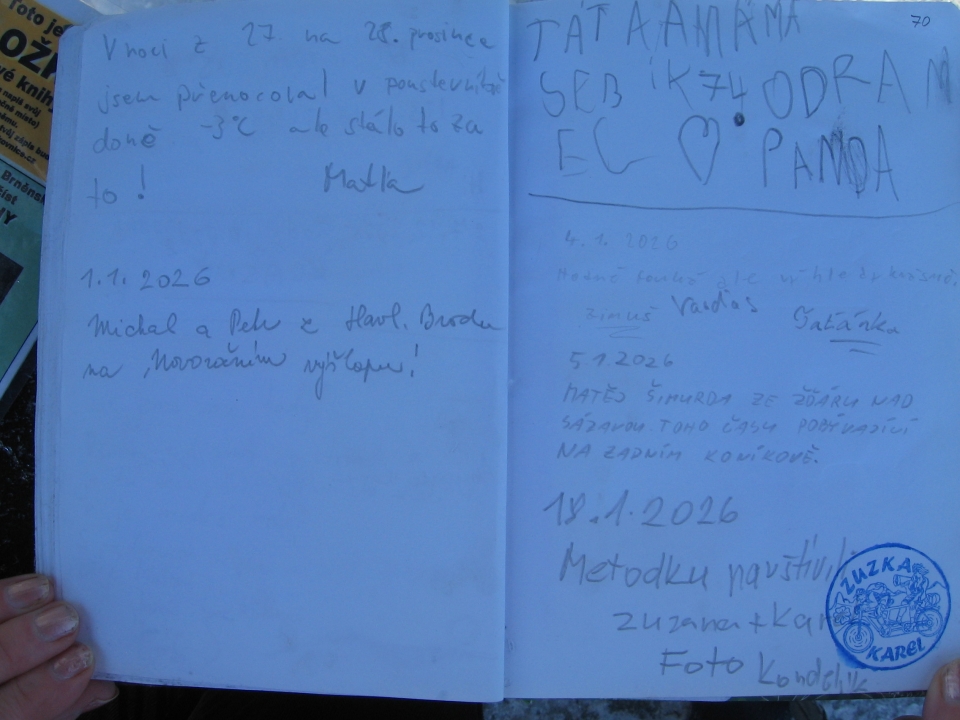 Toto je
vé knih
Brněnsk
V noci z 27. na 28. prosince
jsem přenocoval v poustevnické
době -3°C ale stálo to za
to! Matka
1.1. 2026
Michal a Petr z Havl. Brodu
na „Novoročním výšlapu!
70
TÁTA A MÁMA
SEB ÍK 74 ODRAN
EC ♡ PANDA
4. 1. 2026
Hodně fouká ale výhled krásné.
Šimuš Vardas Taťánka
5.1.2026
MATĚJ ŠIMURDA ZE ŽĎÁRU NAD
SÁZAVOU TOHO ČASU POBÝVAJÍCÍ
NA ZADNÍM KONÍKOVĚ.
18.1.2026
Metodku navštívili
Zuzana + Kar
Foto
ZUZKA
KAREL